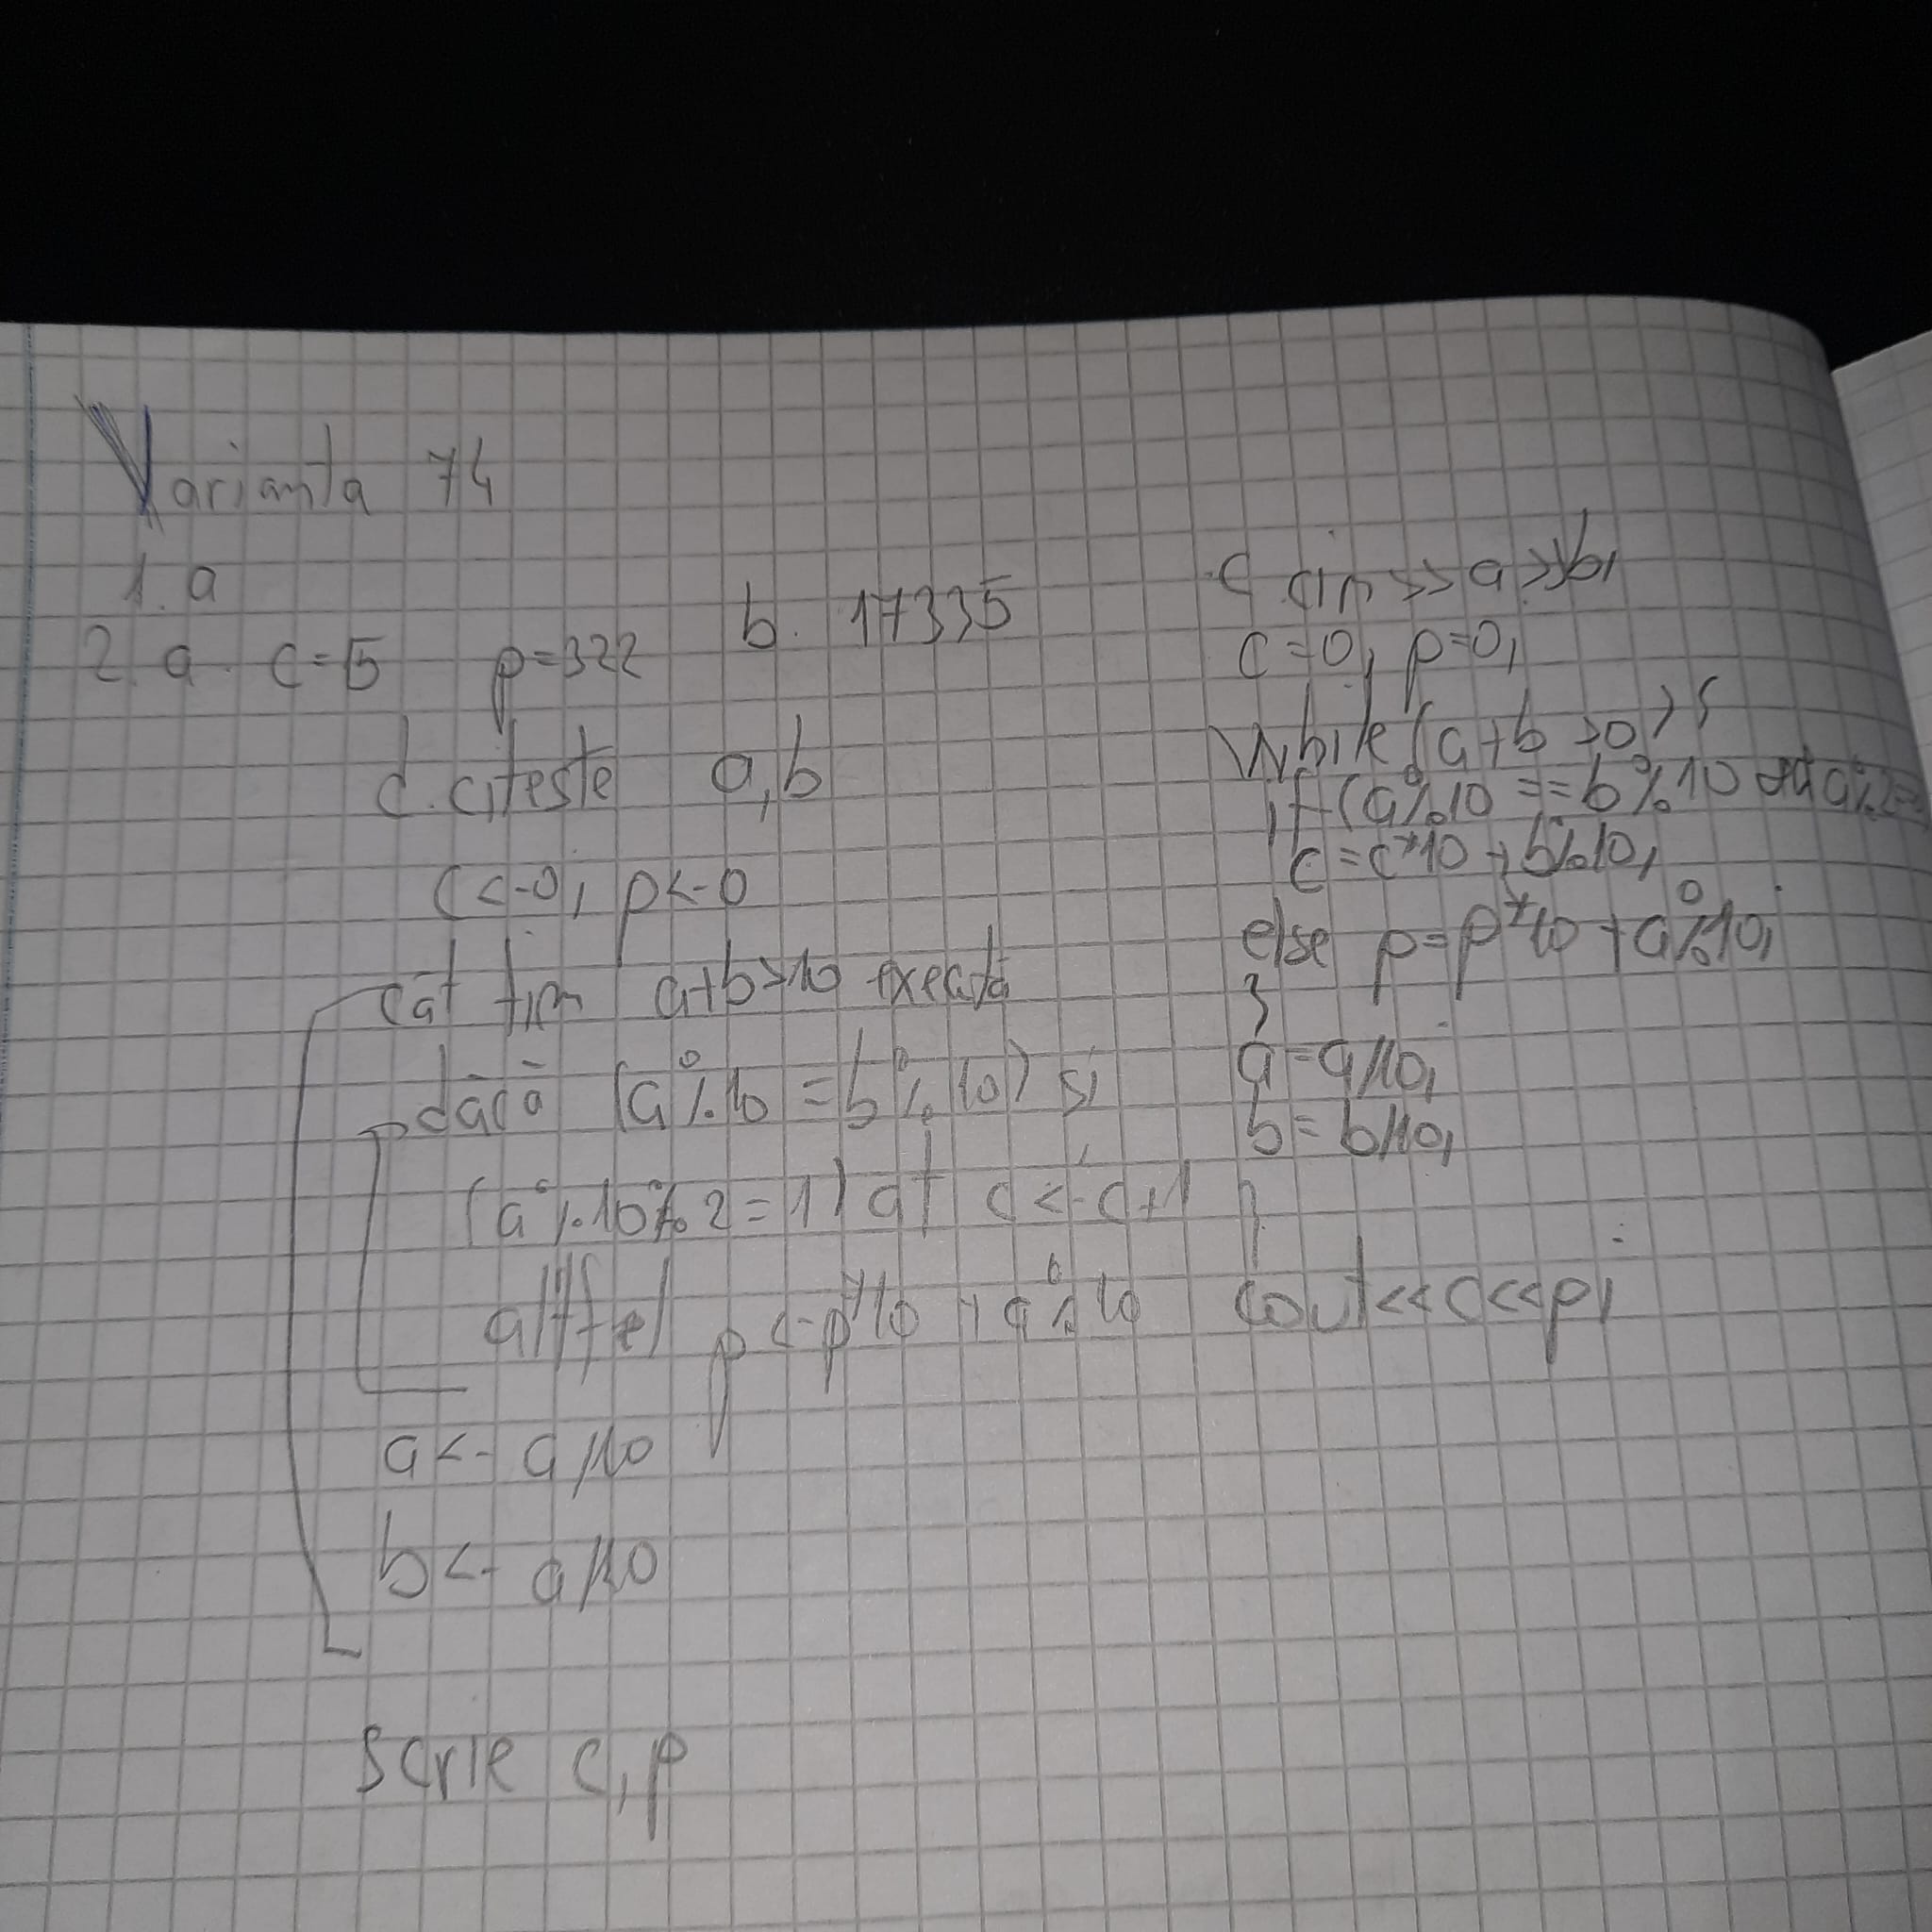 Varianta 74
1. a
2. a. c=5 p=322 b. 17335
d. citeste a,b
c<-0; p<-0
cat timp a+b>10 executa
daca (a%10=b%10) si
(a%10%2=1) at c<-c+1
altfel p<-p*10+a%10
a<-a/10
b<-a/10
scrie c,p
c cin>>a>>b;
c=0; p=0;
While (a+b>0) {
if (a%10==b%10 && a%2==
c=c*10+b%10;
else p=p*10+a%10;
}
a=a/10;
b=b/10;
}
cout<<c<<p;